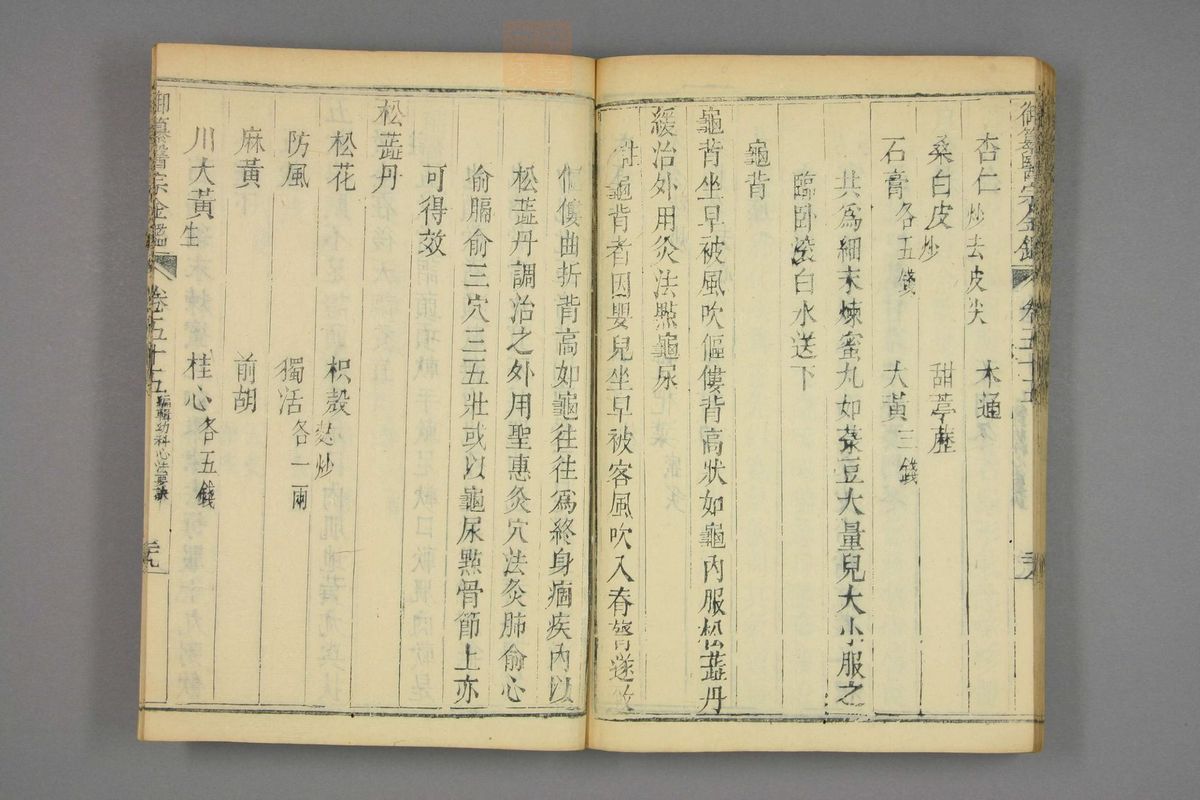 御纂醫宗金鑑 卷五十五 三十八
杏仁炒去皮尖 木通
桑白皮炒 甜葶藶
石膏各五錢 大黃三錢
共為細末煉蜜丸如菉豆大量兒大小服之
臨臥滾白水送下
龜背
龜背坐早被風吹傴僂背高狀如龜內服松蕋丹
緩治外用灸法點龜尿
註龜背者因嬰兒坐早被客風吹入脊膂遂致
傴僂曲折背高如龜往往為終身痼疾內以
松蕋丹調治之外用聖惠灸穴法灸肺俞心
俞膈俞三穴三五壯或以龜尿點骨節上亦
可得效
松蕋丹
松花 枳殼麩炒
防風 獨活各一兩
麻黃 前胡
川大黃生 桂心各五錢
御纂醫宗金鑑 卷五十五 編輯幼科心法要訣 三十九